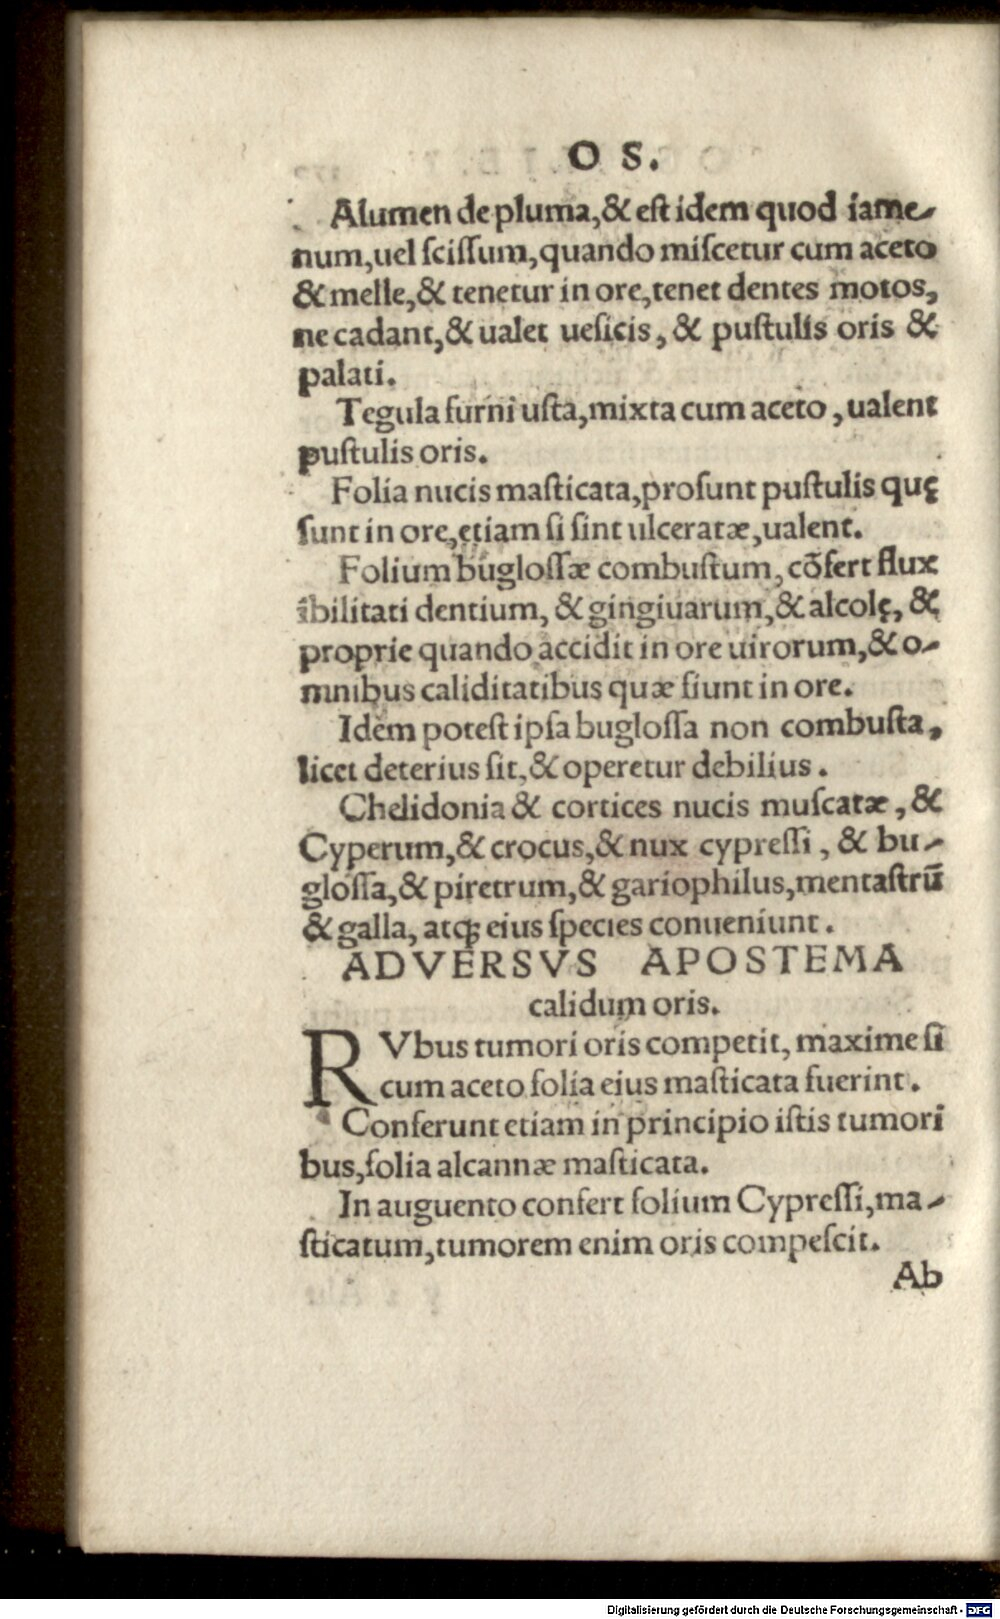 O S.
Alumen de pluma, & est idem quod iame-
num, uel scissum, quando miscetur cum aceto
& melle, & tenetur in ore, tenet dentes motos,
ne cadant, & ualet uesicis, & pustulis oris &
palati.
Tegula furni usta, mixta cum aceto, ualent
pustulis oris.
Folia nucis masticata, prosunt pustulis quę
sunt in ore, etiam si sint ulceratæ, ualent.
Folium buglossæ combustum, cõfert flux
ibilitati dentium, & gingiuarum, & alcolę, &
proprie quando accidit in ore uirorum, & o-
mnibus caliditatibus quæ fiunt in ore.
Idem potest ipsa buglossa non combusta,
licet deterius sit, & operetur debilius.
Chelidonia & cortices nucis muscatæ, &
Cyperum, & crocus, & nux cypressi, & bu-
glossa, & piretrum, & gariophilus, mentastrū
& galla, atq; eius species conueniunt.
ADVERSVS APOSTEMA
calidum oris.
RVbus tumori oris competit, maxime si
cum aceto folia eius masticata fuerint.
Conferunt etiam in principio istis tumori
bus, folia alcannæ masticata.
In auguento confert folium Cypressi, ma-
sticatum, tumorem enim oris compescit.
Ab
Digitalisierung gefördert durch die Deutsche Forschungsgemeinschaft - DFG